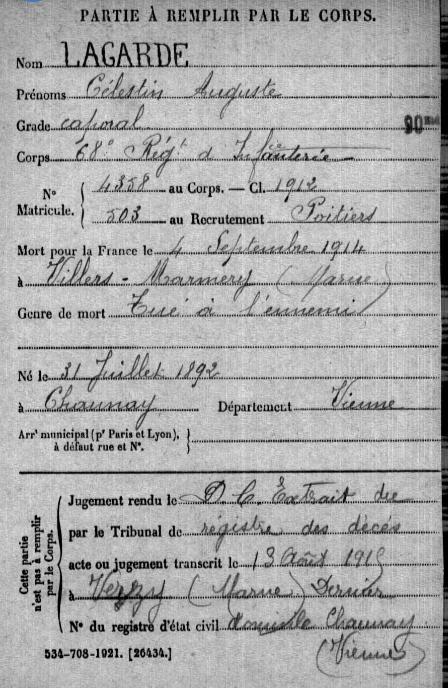 PARTIE À REMPLIR PAR LE CORPS.
Nom LAGARDE
Prénoms Célestin Auguste
Grade caporal
Corps 68e Régt d'Infanterie
No Matricule. { 4358 au Corps. — Cl. 1912
503 au Recrutement Poitiers
Mort pour la France le 4 Septembre 1914
à Villers-Marmery (Marne)
Genre de mort Tué à l'ennemi
Né le 31 Juillet 1892
à Chaunay Département Vienne
Arrt municipal (pr Paris et Lyon), à défaut rue et No.
Cette partie n'est pas à remplir par le Corps.
Jugement rendu le D.C. Extrait du
par le Tribunal de registre des décès
acte ou jugement transcrit le 13 Août 1915
à Verzy (Marne) Dernier
No du registre d'état civil domicile Chaunay
(Vienne)
534-708-1921. [26434.]